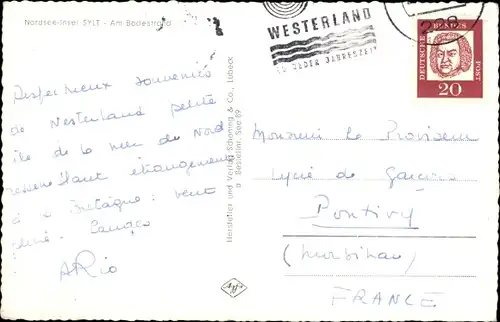 Nordsee-Insel SYLT - Am Badestrand
WESTERLAND
ZU JEDER JAHRESZEIT
228
DEUTSCHE BUNDESPOST
20
Respectueux souvenirs
de Westerland petite
île de la mer du Nord
ressemblant étrangement
à la Bretagne : vent
Hersteller und Verlag Schöning & Co., Lübeck
Bestellnr. See 89
Monsieur le Proviseur
Lycée de Garçons
Pontivy
(Morbihan)
FRANCE